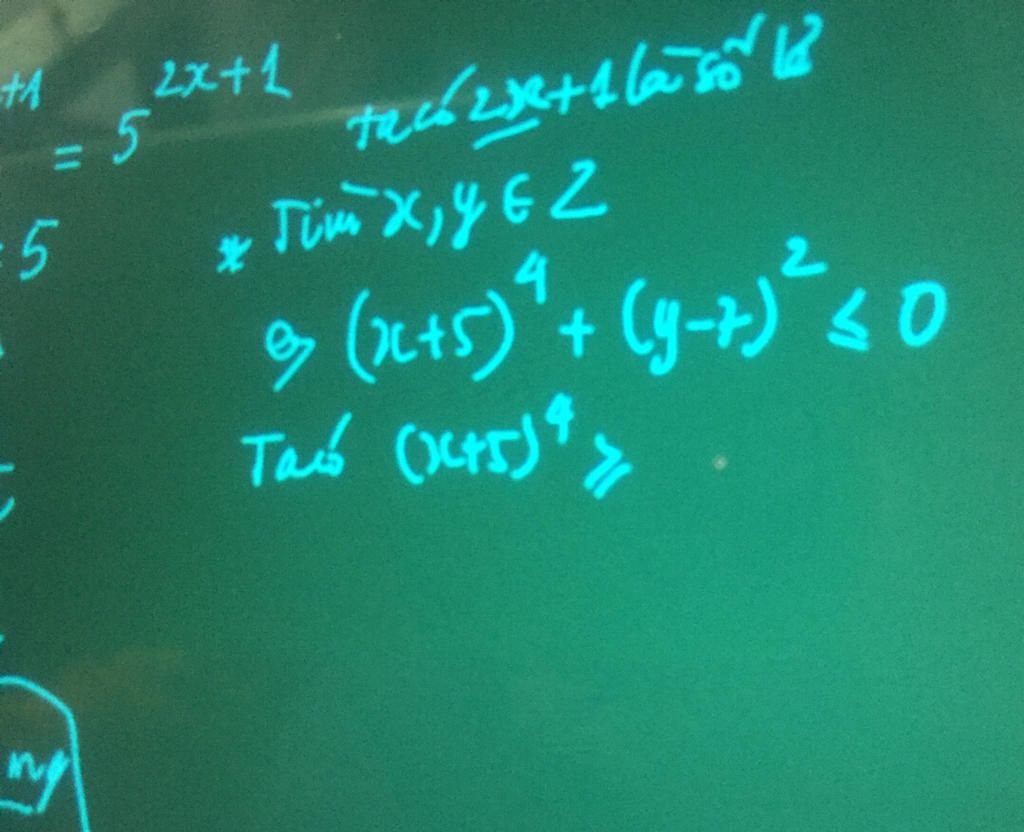 +1 = 5^{2x+1}
ta có 2x+1 là số lẻ
= 5
* Tìm x, y ∈ Z
a, (x+5)^4 + (y-7)^2 ≤ 0
Ta có (x+5)^4 ≥
ng